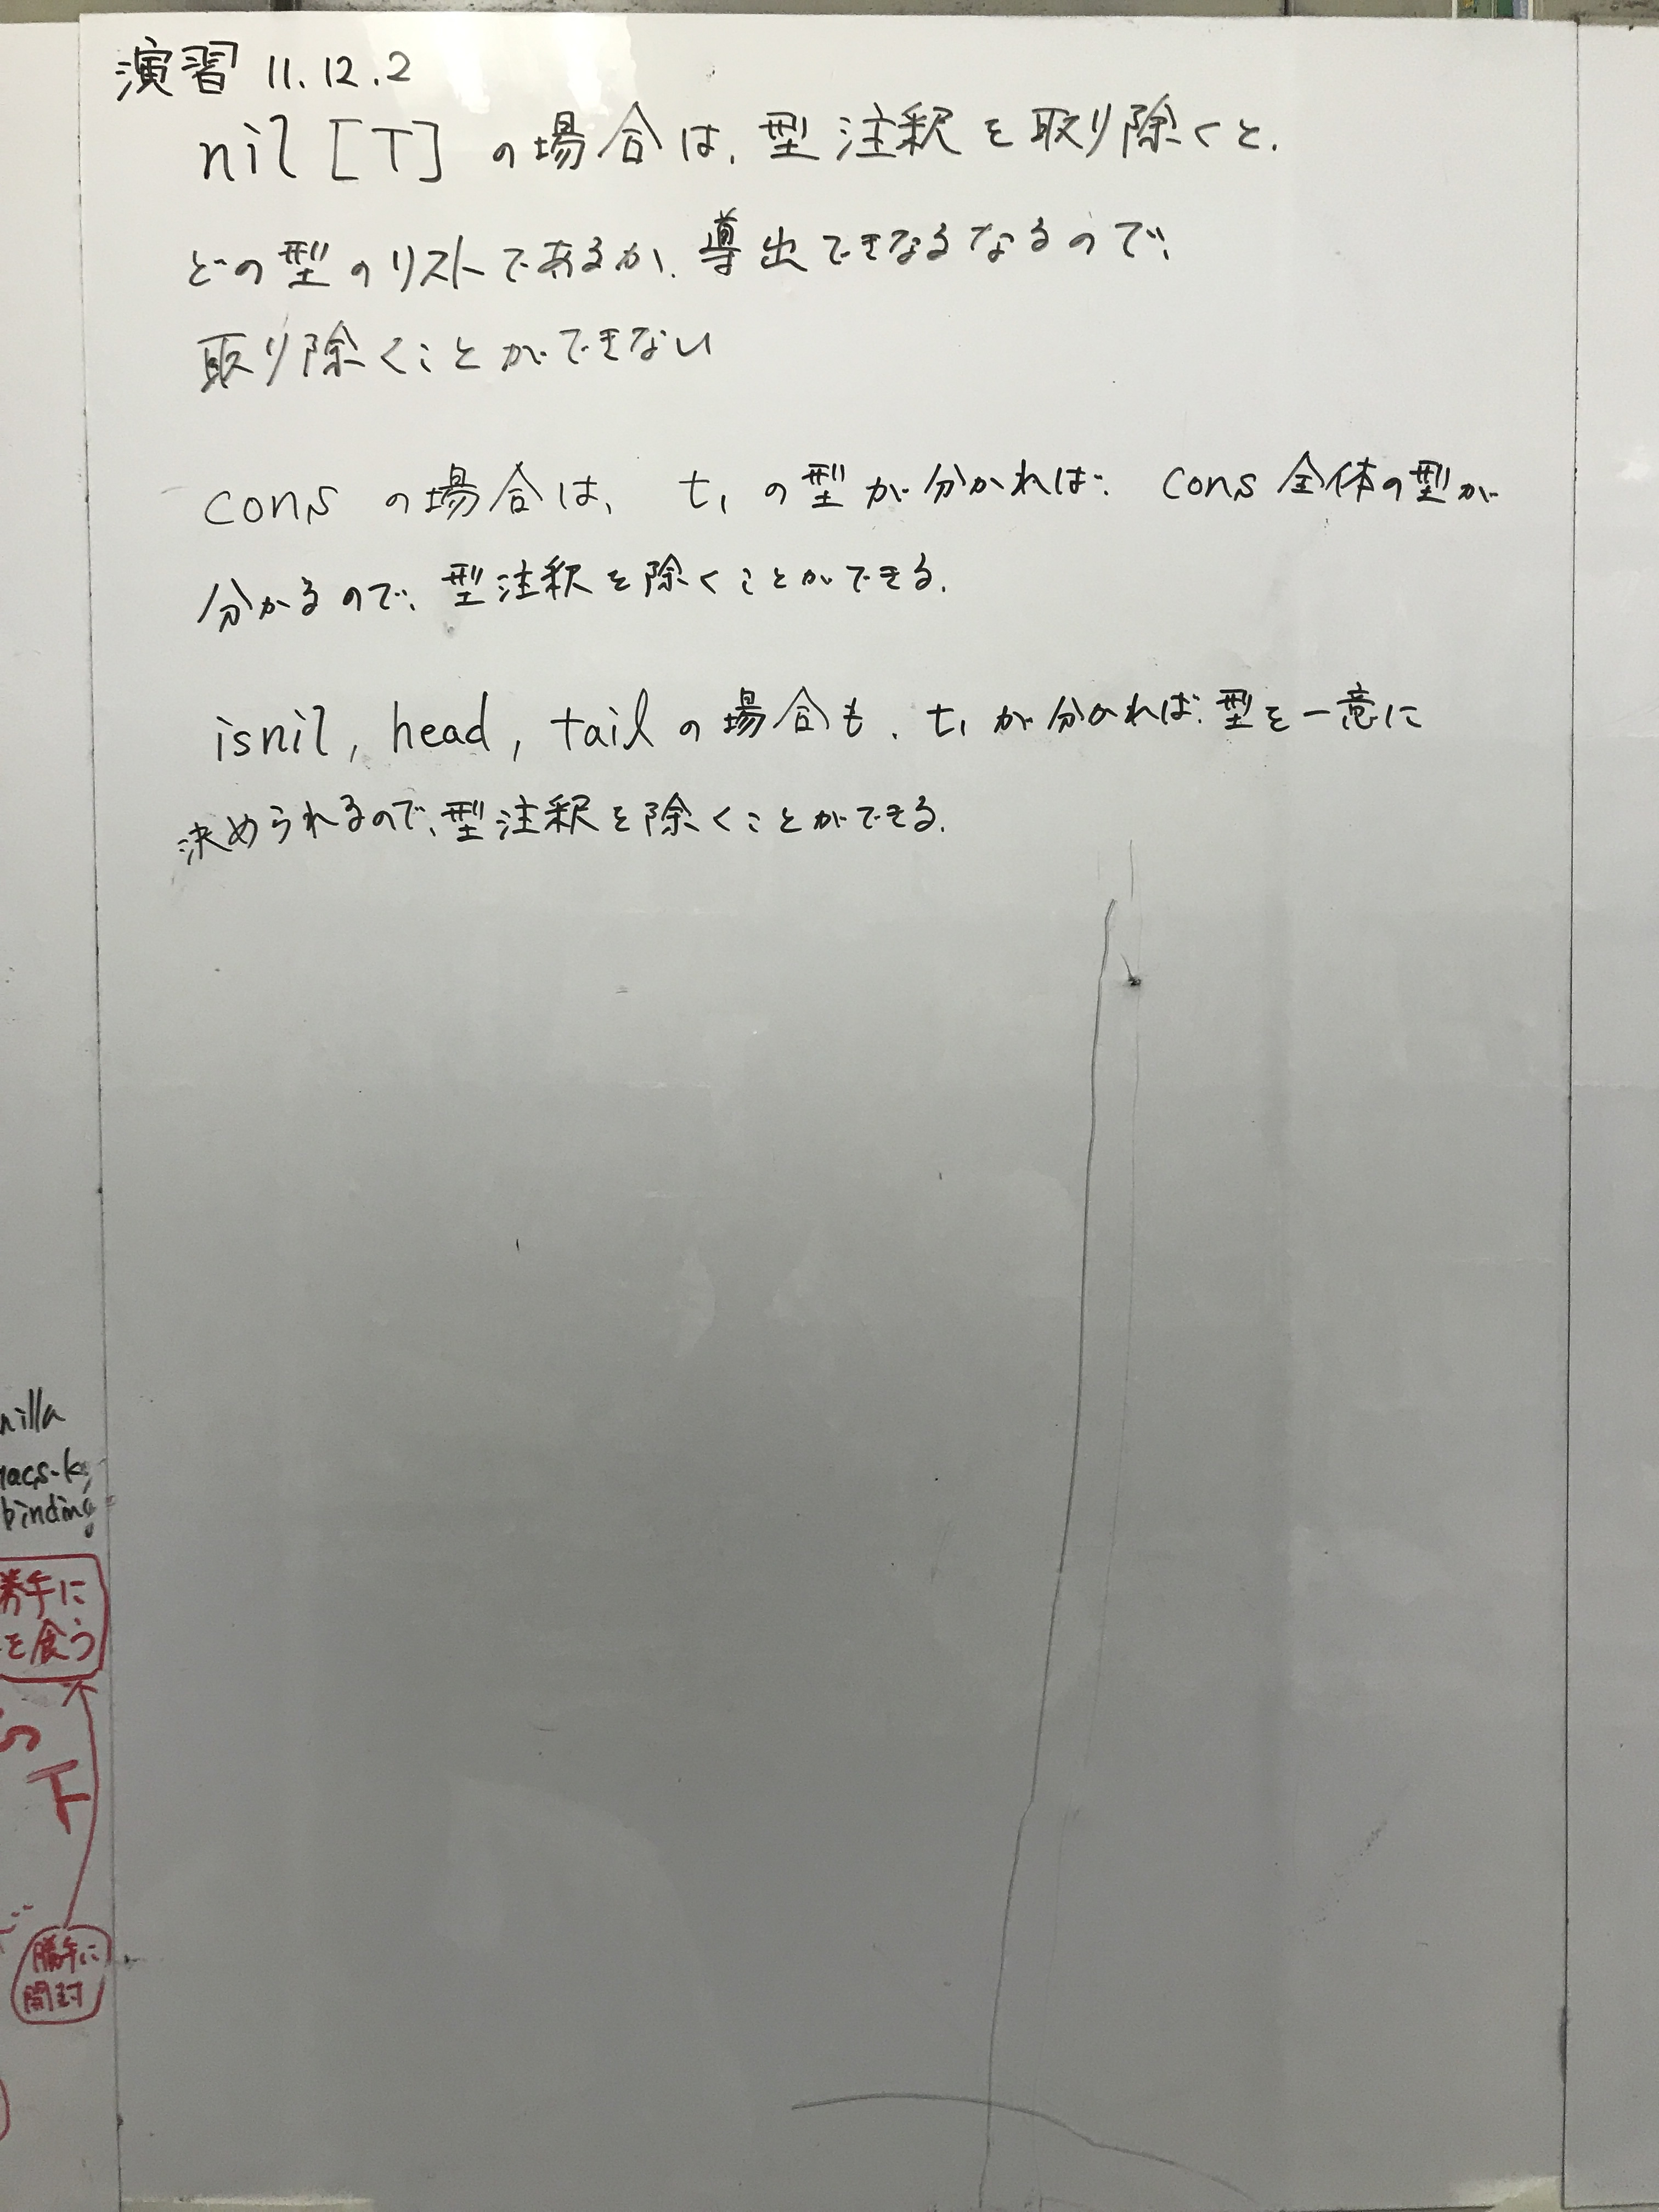 演習 11.12.2
nil [T] の場合は、型注釈を取り除くと、
どの型のリストであるか、導出できなるなるので、
取り除くことができない
cons の場合は、t₁ の型が分かれば、cons 全体の型が
分かるので、型注釈を除くことができる.
isnil, head, tail の場合も、t₁ が分かれば、型を一意に
決められるので、型注釈を除くことができる.
nilla
macs-k
binding
勝手に
を食う
下
勝手に
開封